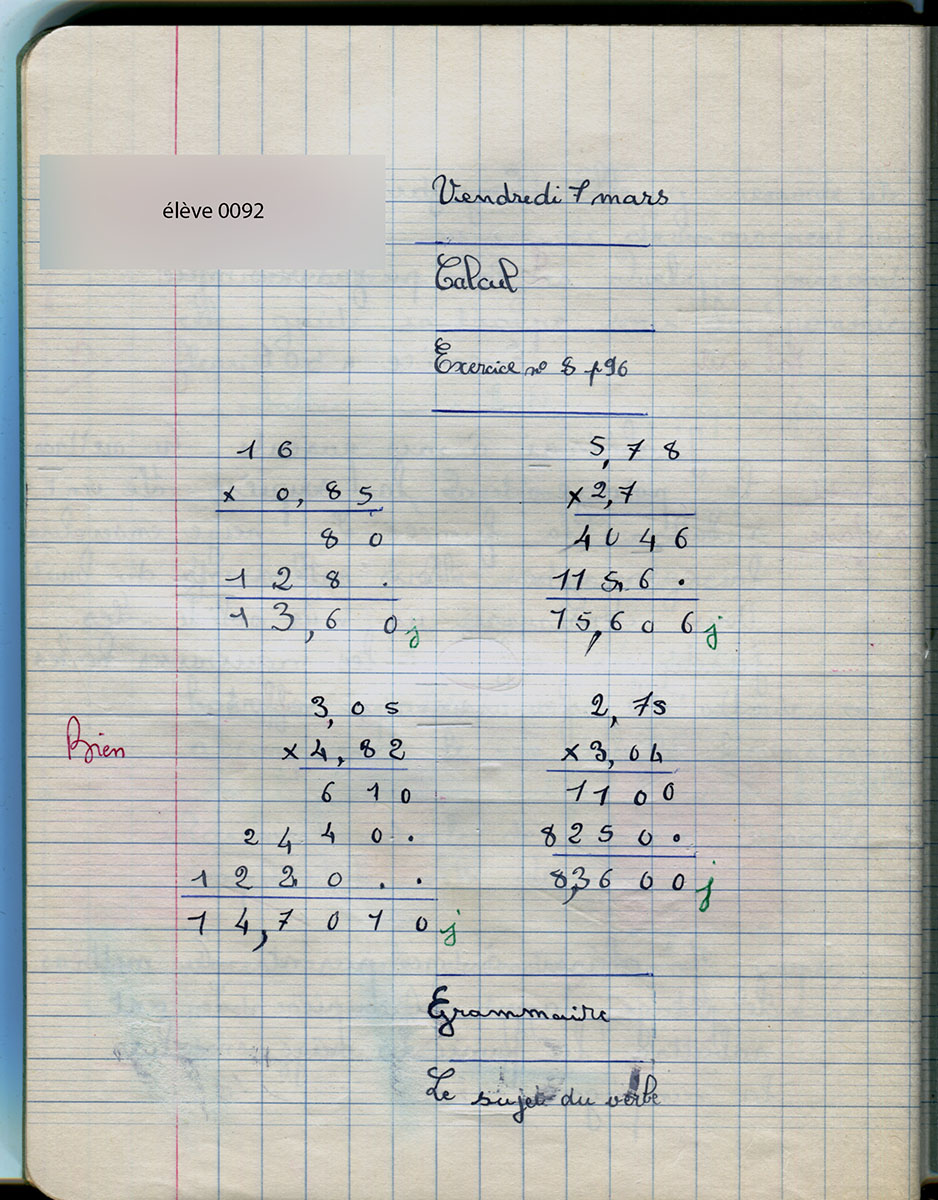 élève 0092
Vendredi 7 mars
Calcul
Exercice nº 8 p 96
1 6
x 0,85
8 0
1 2 8 .
1 3,6 0 j
5,7 8
x 2,7
4 0 4 6
1 1 5 6 .
1 5,6 0 6 j
Bien
3,0 5
x 4,8 2
6 1 0
2 4 4 0 .
1 2 2 0 . .
1 4,7 0 1 0 j
2,75
x 3,04
1 1 0 0
8 2 5 0 .
8,3 6 0 0 j
Grammaire
Le sujet du verbe